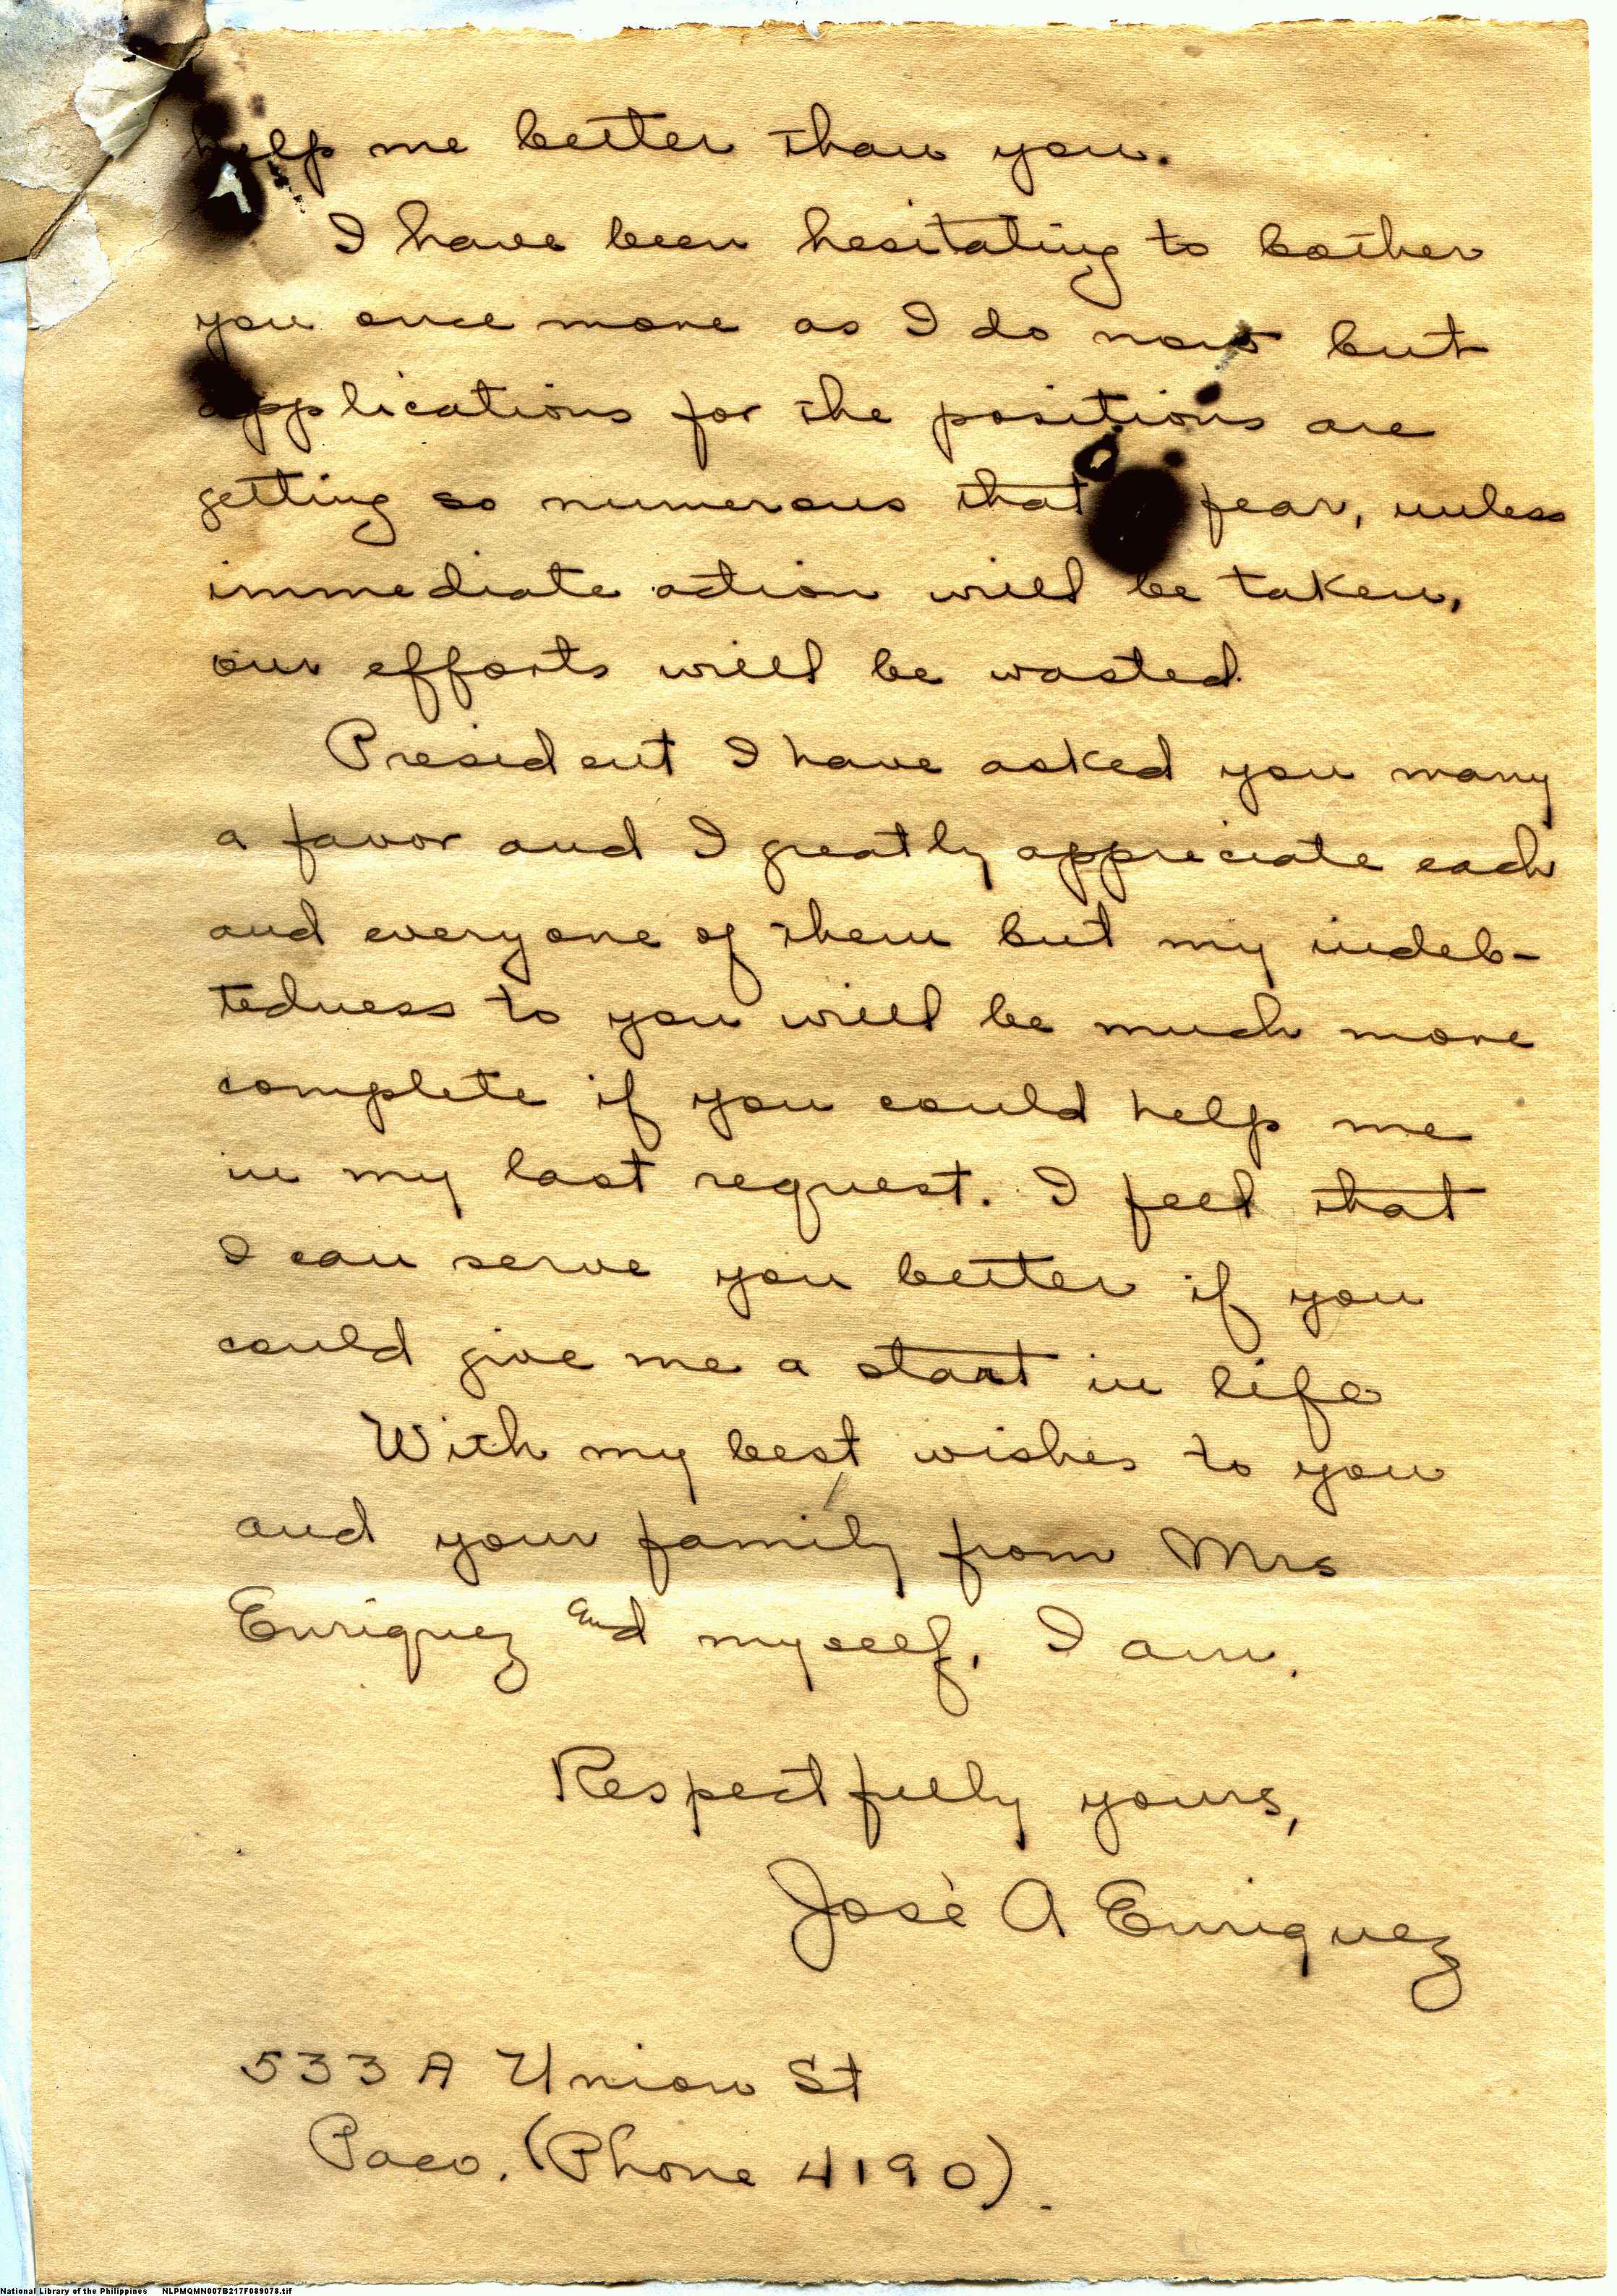 help me better than you.
I have been hesitating to bother
you once more as I do now but
applications for the positions are
getting so numerous that fear, unless
immediate action will be taken,
our efforts will be wasted.
President I have asked you many
a favor and I greatly appreciate each
and everyone of them but my indeb-
tedness to you will be much more
complete if you could help me
in my last request. I feel that
I can serve you better if you
could give me a start in life
With my best wishes to you
and your family from Mrs
Enriquez and myself, I am,
Respectfully yours,
José A Enriquez
533 A Union St
Paco. (Phone 4190).
National Library of the Philippines NLPMQMN007B217F089078.tif